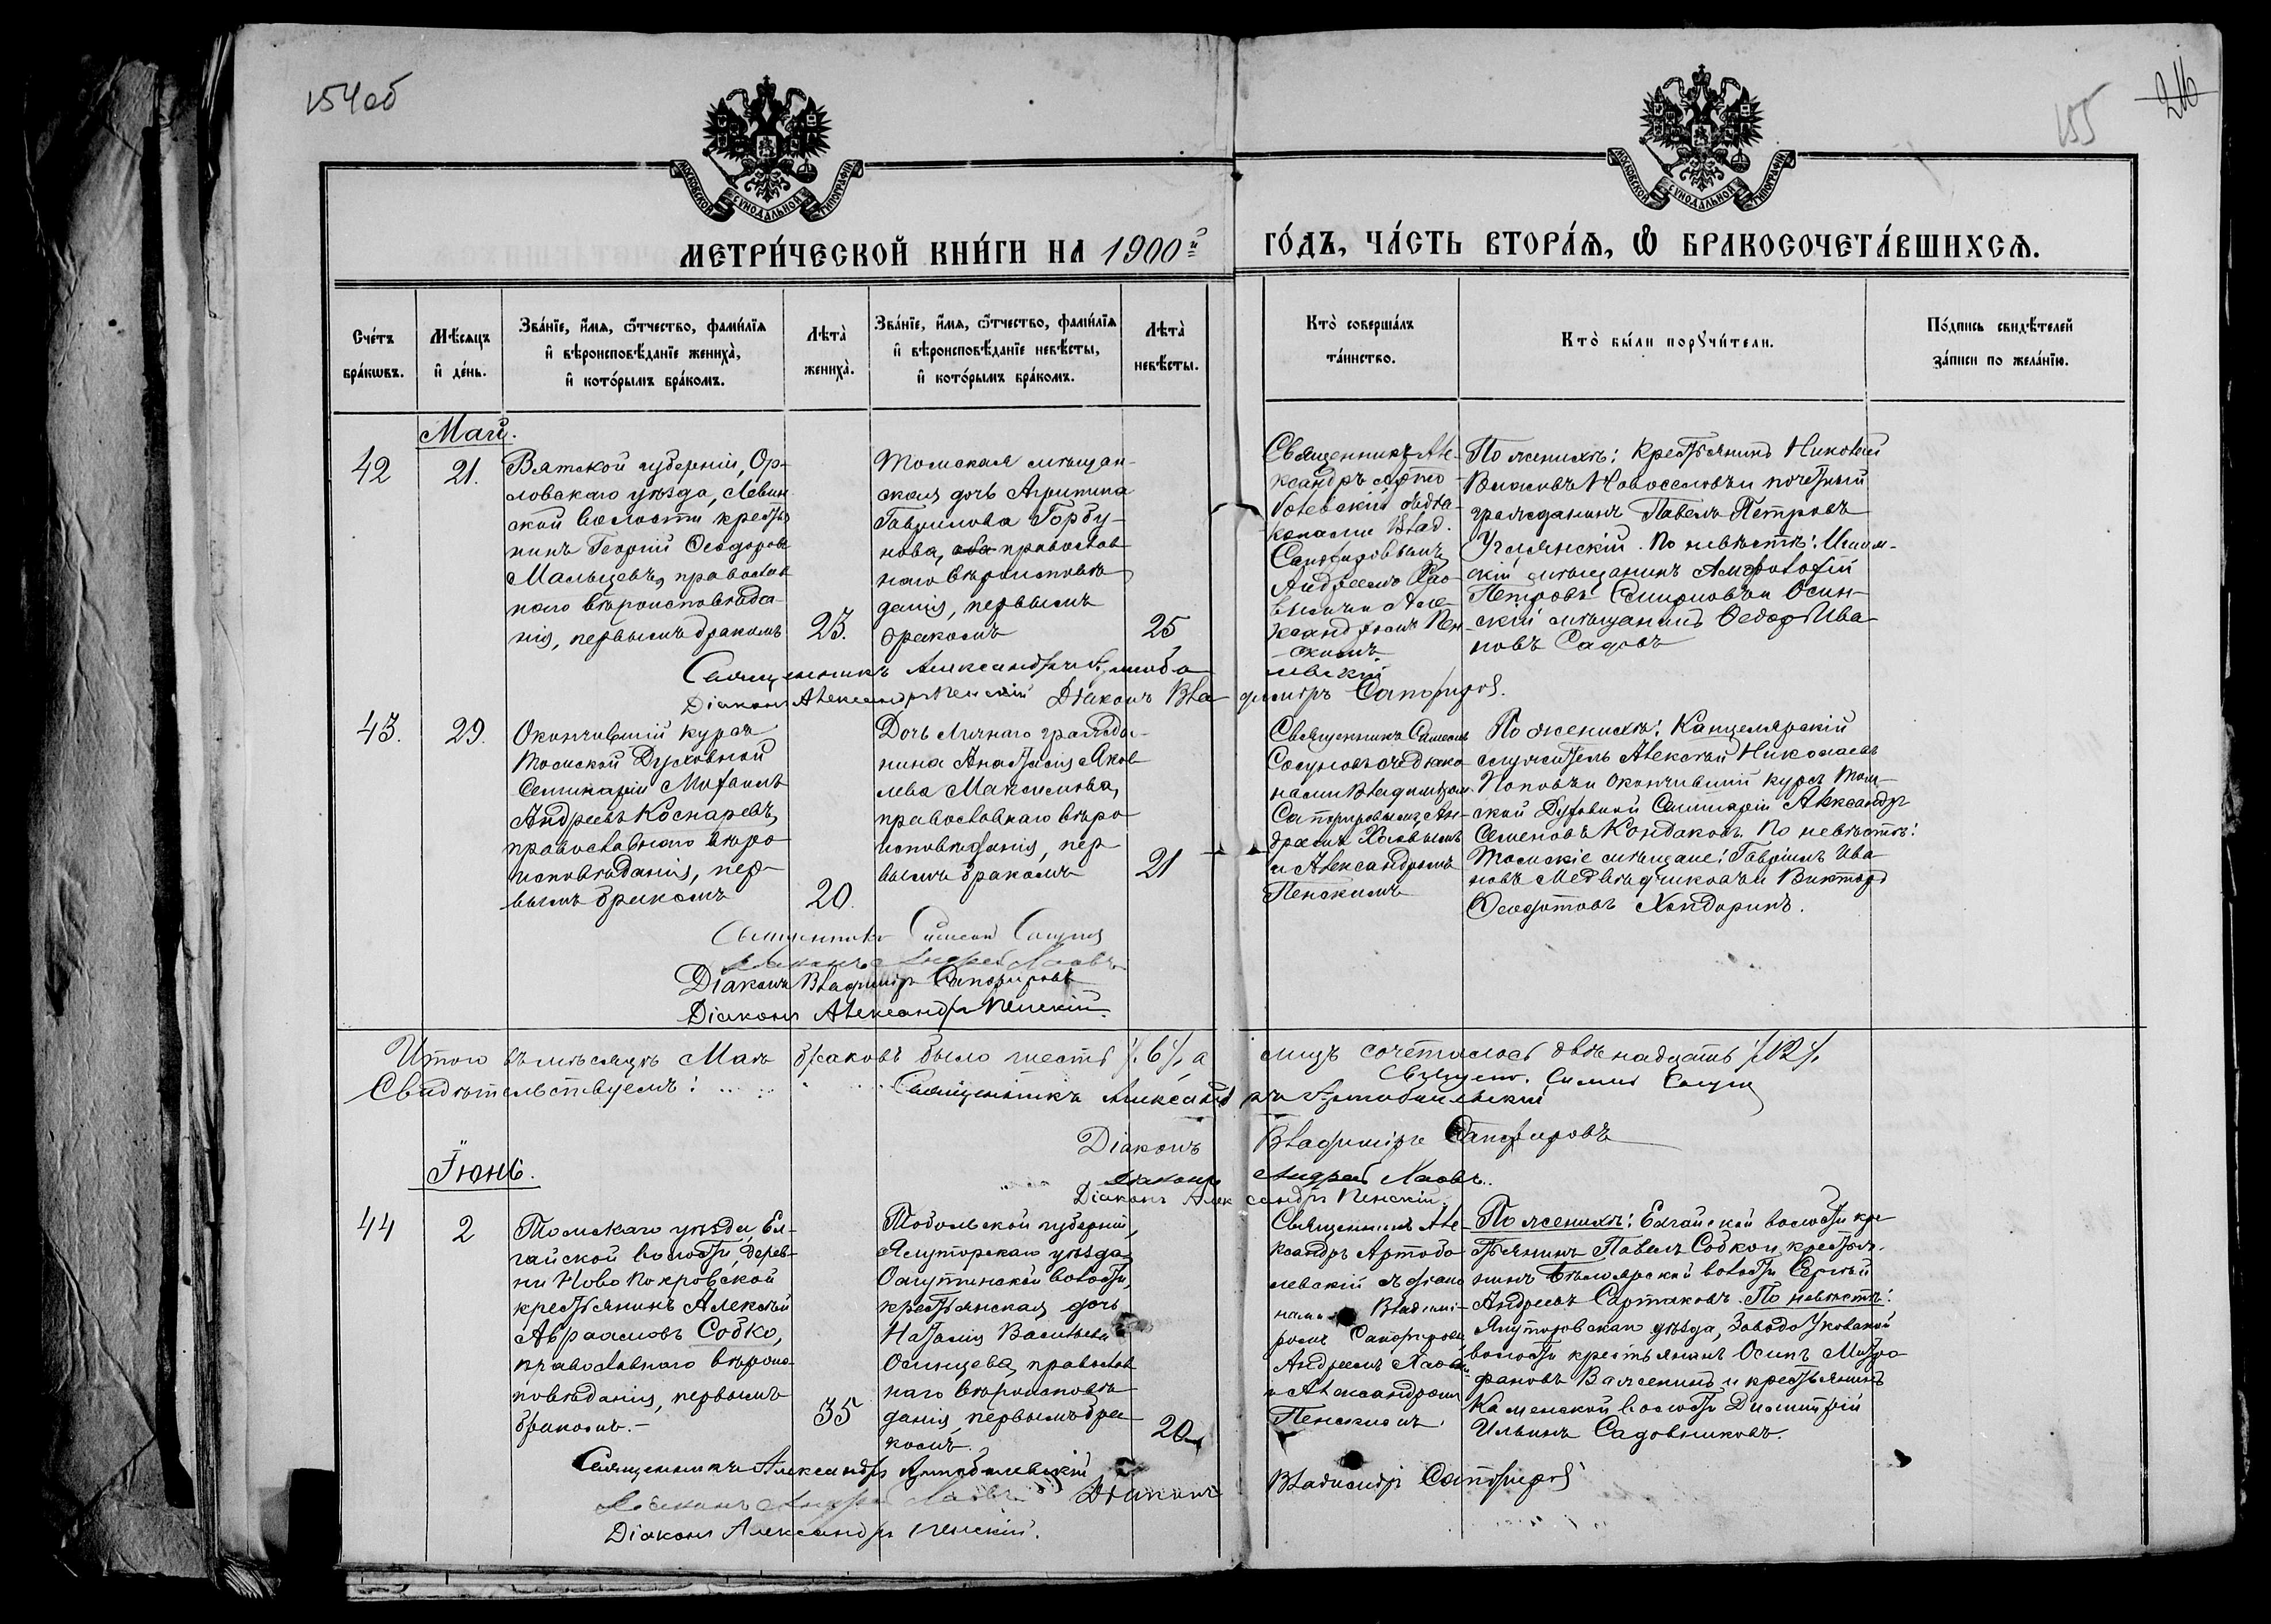 154об
155
216
МОСКОВСКОЙ СУНОДАЛЬНОЙ ТИПОГРАФІИ
МОСКОВСКОЙ СУНОДАЛЬНОЙ ТИПОГРАФІИ
МЕТРИ́ЧЕСКОЙ КНИ́ГИ НА 1900й ГО́ДЪ, ЧА́СТЬ ВТОРА́Я, Ѽ БРАКОСОЧЕТА́ВШИХСѦ.
Сче́тъ
бра́кѡвъ.
Мѣ́сяцъ
и҆ де́нь.
Зва́нїе, и҆́мя, ѻ҆́тчество, фами́лїя
и҆ вѣроисповѣ́данїе жениха̀,
и҆ кото́рымъ бра́комъ.
Лѣта̀
жениха̀.
Зва́нїе, и҆́мя, ѻ҆́тчество, фами́лїя
и҆ вѣроисповѣ́данїе невѣ́сты,
и҆ кото́рымъ бра́комъ.
Лѣта̀
невѣ́сты.
Кто̀ соверша́лъ
та́инство.
Кто̀ бы́ли порꙋчи́тели.
По́дпись свидѣ́телей
за́писи по жела́нїю.
Май.
42
21.
Вятской губерніи, Ор-
ловскаго уѣзда, Левин
ской волости крестья
нинъ Георгій Ѳеодоровъ
Мальцевъ, православ
наго вѣроисповѣда-
нія, первымъ бракомъ
23.
Томская мѣщан-
ская дочь Агрипина
Гавриилова Горбу-
нова, православ
наго вѣроисповѣ
данія, первымъ
бракомъ
25
Священникъ Але-
ксандръ Арто
болевскій съ діа
конами Влад.
Сапфировымъ
Андреемъ
и Але-
ксандромъ Пен
скимъ
По женихѣ: Крестьянинъ Николай
Власовъ Новоселовъ и почетный
гражданинъ Павелъ Петровъ
По невѣстѣ: Ишим-
скій мѣщанинъ
Петровъ Смирновъ и Осин-
скій мѣщанинъ Ѳедоръ Ива
новъ Садовъ
Священникъ Александръ Артоболевскій
Діаконъ Александръ Пенскій Діаконъ Владиміръ Сапфировъ.
43.
29.
Окончившій курсъ
Томской Духовной
Семинаріи Михаилъ
Андреевъ Коснаревъ,
православнаго вѣро
исповѣданія, пер-
вымъ бракомъ
20.
Дочь личнаго гражда-
нина Анастасія Яков
лева Максимова,
православнаго вѣро
исповѣданія, пер
вымъ бракомъ
21
Священникъ Симеонъ
Сосуновъ съ діако
нами Владиміромъ
Сапфировымъ, Ан-
дреемъ
и Александромъ
Пенскимъ
По женихѣ: Канцелярскій
служитель Алексѣй Николаевъ
Поповъ и окончившій курсъ Том-
ской Духовной Семинаріи Александръ
Семеновъ Кондаковъ. По невѣстѣ:
Томскіе мѣщане: Гавріилъ Ива
новъ Медвѣдчиковъ и Викторъ
Ѳеодотовъ Хондоринъ.
Священникъ Симеонъ Сосуновъ
Діаконъ Андрей
Діаконъ Владиміръ Сапфировъ
Діаконъ Александръ Пенскій.
Итого въ мѣсяцѣ Маѣ браковъ было шесть /:6:/, а лицъ сочеталось двѣнадцать /:12:/.
Свидѣтельствуемъ: Священ. Симеонъ Сосуновъ
Священникъ Александръ Артоболевскій
Діаконъ Владиміръ Сапфировъ
Діаконъ Андрей
Діаконъ Александръ Пенскій.
Іюнь.
44
2
Томскаго уѣзда, Ел-
гайской волости, дерев-
ни Ново Покровской
крестьянинъ Алексѣй
Авраамовъ Собко,
православнаго вѣроис
повѣданія, первымъ
бракомъ.-
35
Тобольской губерніи,
Ялуторскаго уѣзда,
Омутинской волости,
крестьянская дочь
Наталія Васильева
Осинцева, православ
наго вѣроисповѣ
данія, первымъ бра
комъ.
20.
Священникъ Але-
ксандръ Артобо
левскій съ діако
нами Владимі-
ромъ Сапфировымъ,
Андреемъ
и Александромъ
Пенскимъ
По женихѣ: Елгайской волости кре
стьянинъ Павелъ Собко и крестья-
нинъ волости Сергѣй
Андреевъ Сартаковъ. По невѣстѣ:
Ялуторовскаго уѣзда, Заводо Уковской
волости крестьянинъ Осипъ Митро
фановъ Важенинъ и крестьянинъ
Каменской волости Димитрій
Ильинъ Садовниковъ.
Священникъ Александръ Артоболевскій
Діаконъ Андрей Діаконъ Владиміръ Сапфировъ
Діаконъ Александръ Пенскій.